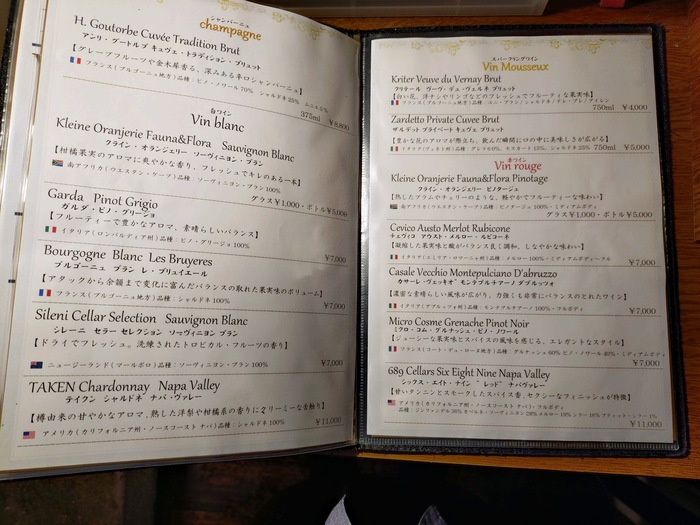 シャンパーニュ
champagne
H. Goutorbe Cuvée Tradition Brut
アンリ・グートルブ キュヴェ・トラディション・ブリュット
【グレープフルーツや金木犀香る、深みある辛口シャンパーニュ】
375ml ¥8,800
白ワイン
Vin blanc
Kleine Oranjerie Fauna&Flora Sauvignon Blanc
クライン・オランジェリー・ソーヴィニヨン・ブラン
【柑橘果実のアロマに爽やかな香り、フレッシュでキレのある一本】
南アフリカ(ウエスタン・ケープ)品種:ソーヴィニヨン・ブラン100%
グラス¥1,000・ボトル¥5,000
Garda Pinot Grigio
ガルダ・ピノ・グリージョ
【フルーティーで豊かなアロマ、素晴らしいバランス】
イタリア(ロンバルディア州)品種:ピノ・グリージョ 100%
¥7,000
Bourgogne Blanc Les Bruyeres
ブルゴーニュ ブラン レ・ブリュイエール
【アタックから余韻まで変化に富んだバランスの取れた果実味のボリューム】
フランス(ブルゴーニュ地方)品種:シャルドネ 100%
¥7,000
Sileni Cellar Selection Sauvignon Blanc
シレーニ セラー セレクション ソーヴィニヨン ブラン
【ドライでフレッシュ。洗練されたトロピカル・フルーツの香り】
ニュージーランド(マールボロ)品種:ソーヴィニヨン・ブラン 100%
¥7,000
TAKEN Chardonnay Napa Valley
テイクン シャルドネ ナパ・ヴァレー
【樽由来の甘やかなアロマ、熟した洋梨や柑橘系の香りにクリーミーな舌触り】
アメリカ(カリフォルニア州・ノースコースト ナパ)品種:シャルドネ 100%
¥11,000
スパークリングワイン
Vin Mousseux
Kriter Veuve du Vernay Brut
クリテール ヴーヴ・デュ・ヴェルネ ブリュット
【白い花、洋ナシやリンゴなどのフレッシュでフルーティな果実味】
750ml ¥4,000
Zardetto Private Cuvee Brut
ザルデット プライベート キュヴェ ブリュット
【豊かな花のアロマが際立ち、飲んだ瞬間に口の中に美味しさが広がる】
750ml ¥5,000
赤ワイン
Vin rouge
Kleine Oranjerie Fauna&Flora Pinotage
クライン・オランジェリー ピノタージュ
【熟したプラムやチェリーのような、軽やかでフルーティーな味わい】
南アフリカ(ウエスタン・ケープ)品種:ピノタージュ 100%・ミディアムボディ
グラス¥1,000・ボトル¥5,000
Cevico Austo Merlot Rubicone
チェヴィコ アウスト・メルロー・ルビコーネ
【凝縮した果実味と酸がバランス良く調和、しなやかな味わい】
イタリア(エミリア・ロマーニャ州)品種:メルロー 100%・ミディアムボディ
¥7,000
Casale Vecchio Montepulciano D'abruzzo
カサーレ・ヴェッキオ モンテプルチアーノ ダブルッツォ
【濃密な素晴らしい風味が広がり、力強くも非常にバランスのとれたワイン】
¥7,000
Micro Cosme Grenache Pinot Noir
ミクロ・コム・グルナッシュ・ピノ・ノワール
【ジューシーな果実味とスパイスの風味を感じる、エレガントなスタイル】
¥7,000
689 Cellars Six Eight Nine Napa Valley
シックス・エイト・ナイン "レッド" ナパヴァレー
【甘いタンニンとスモークしたスパイス香、セクシーなフィニッシュが特徴】
アメリカ(カリフォルニア州・ノースコースト ナパ)・フルボディ
¥11,000